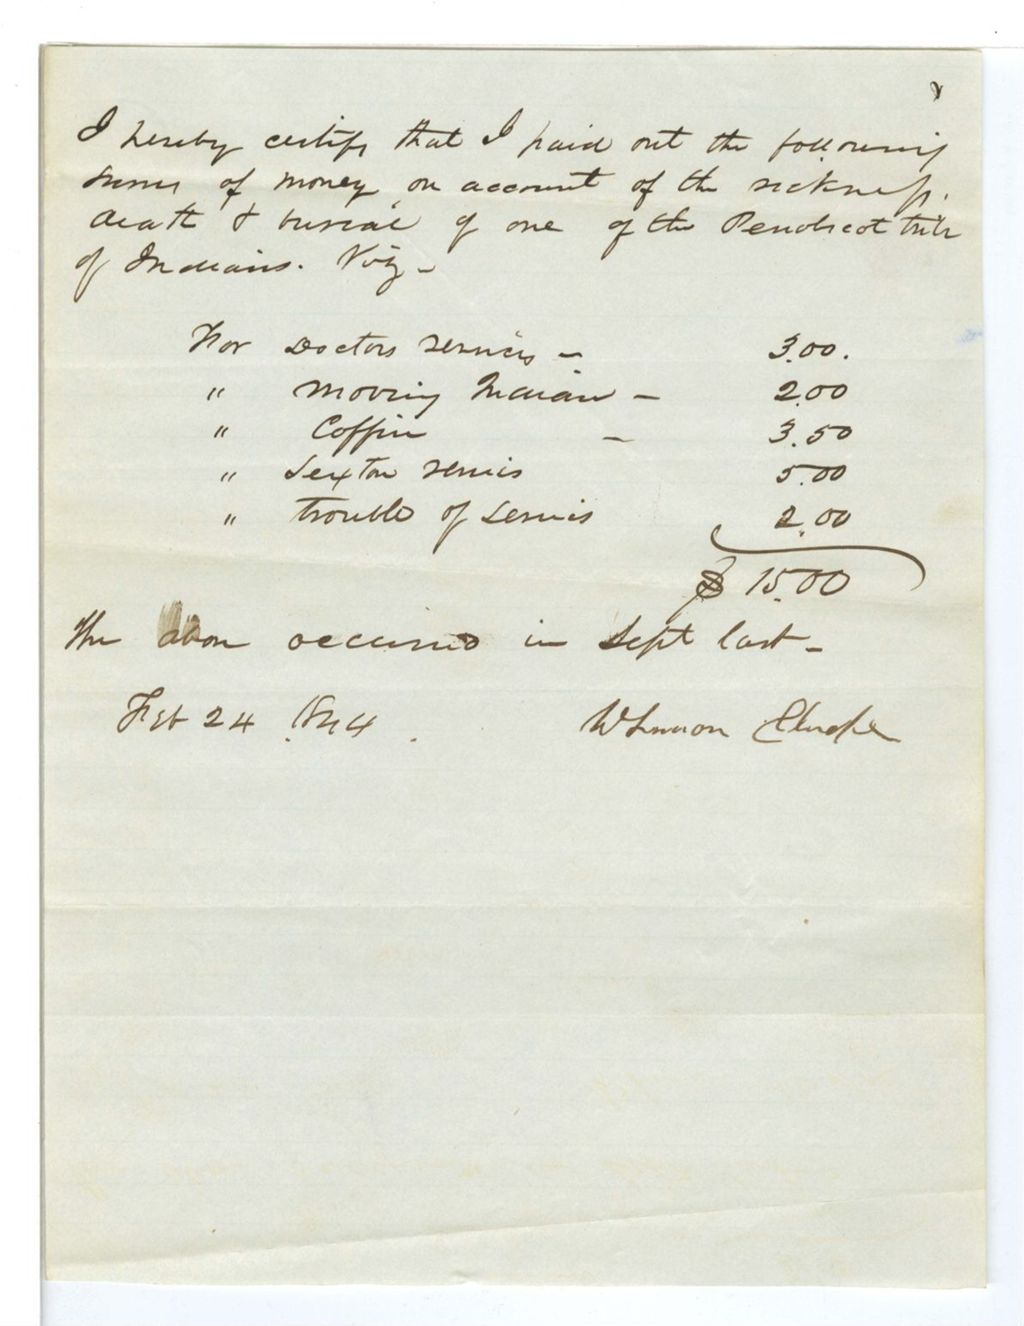 I hereby certify that I paid out the following
sums of money on account of the sickness,
death & burial of one of the Penobscot tribe
of Indians. Viz -
For Doctors services - 3.00.
" moving Indian - 2.00
" Coffin - 3.50
" Sexton services 5.00
" trouble & services 2.00
$ 15.00
The above occurred in Sept last -
Feb 24 1844.